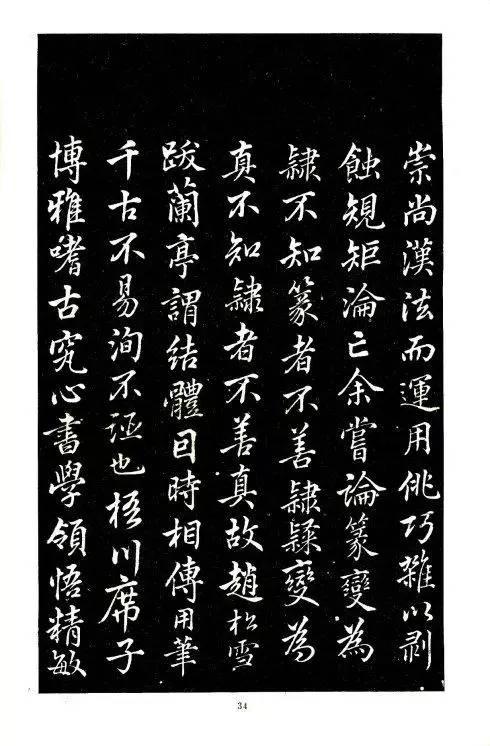 崇尚漢法而運用佻巧雜以剥
蝕規矩淪亡余嘗論篆變為
隸不知篆者不善隸隸變為
真不知隸者不善真故趙松雪
跋蘭亭謂結體囙時相傳用筆
千古不易洵不誣也梧川席子
博雅嗜古究心書學領悟精敏
34